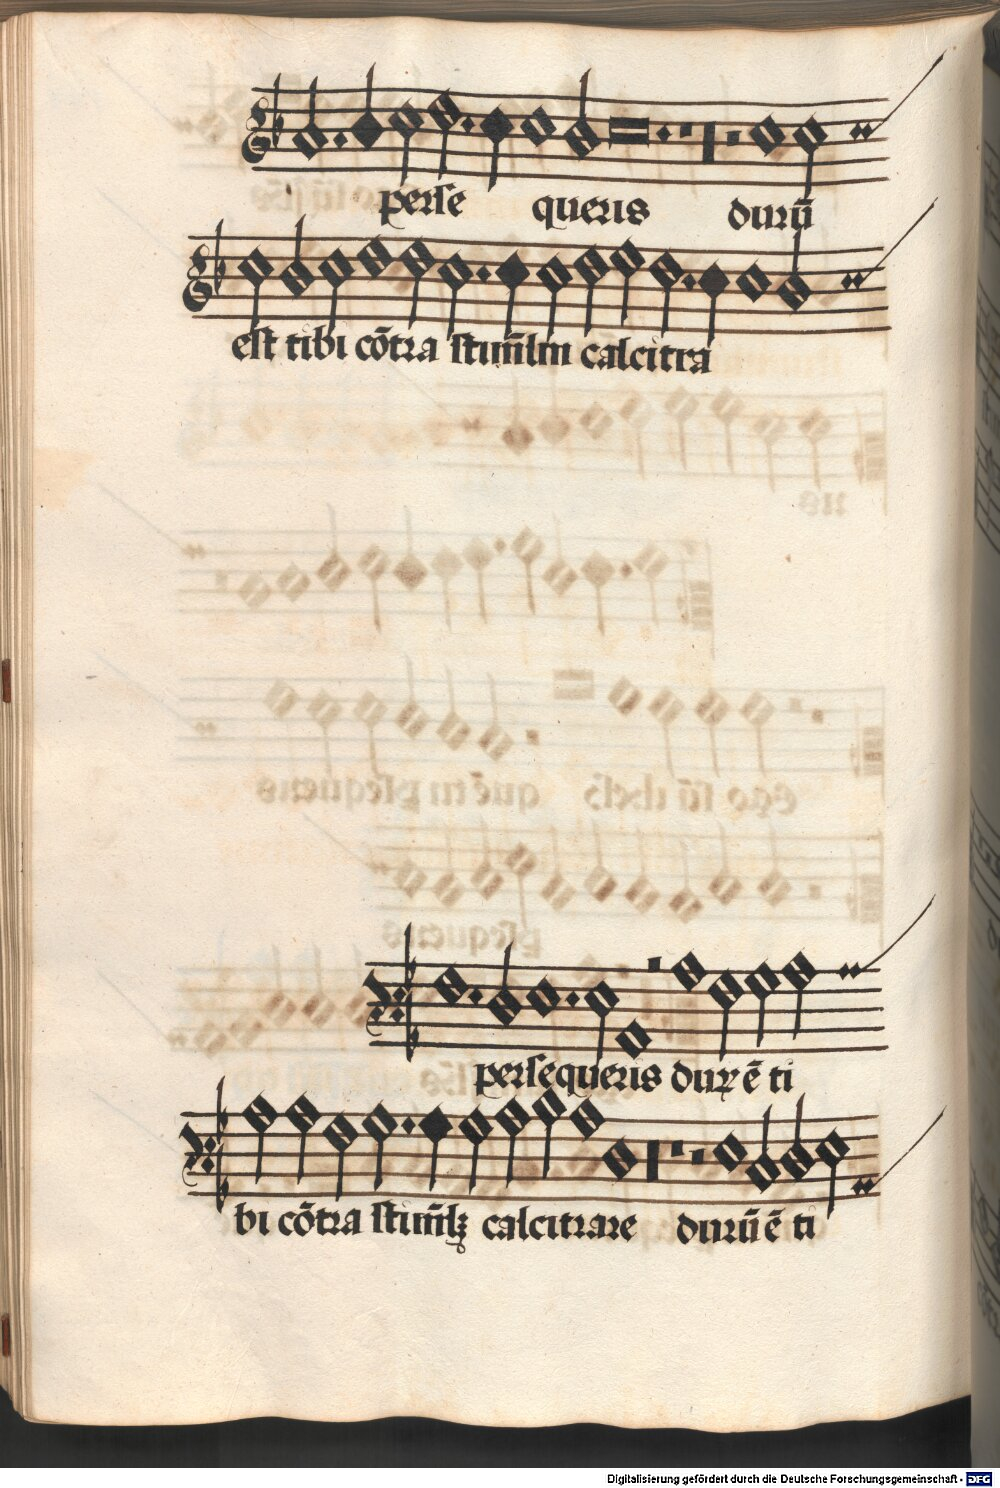 perse queris durū
est tibi cōtra stim̄lm calcitra
persequeris durꝝ ē ti
bi cōtra stim̄lꝫ calcitrare durū ē ti
Digitalisierung gefördert durch die Deutsche Forschungsgemeinschaft - DFG